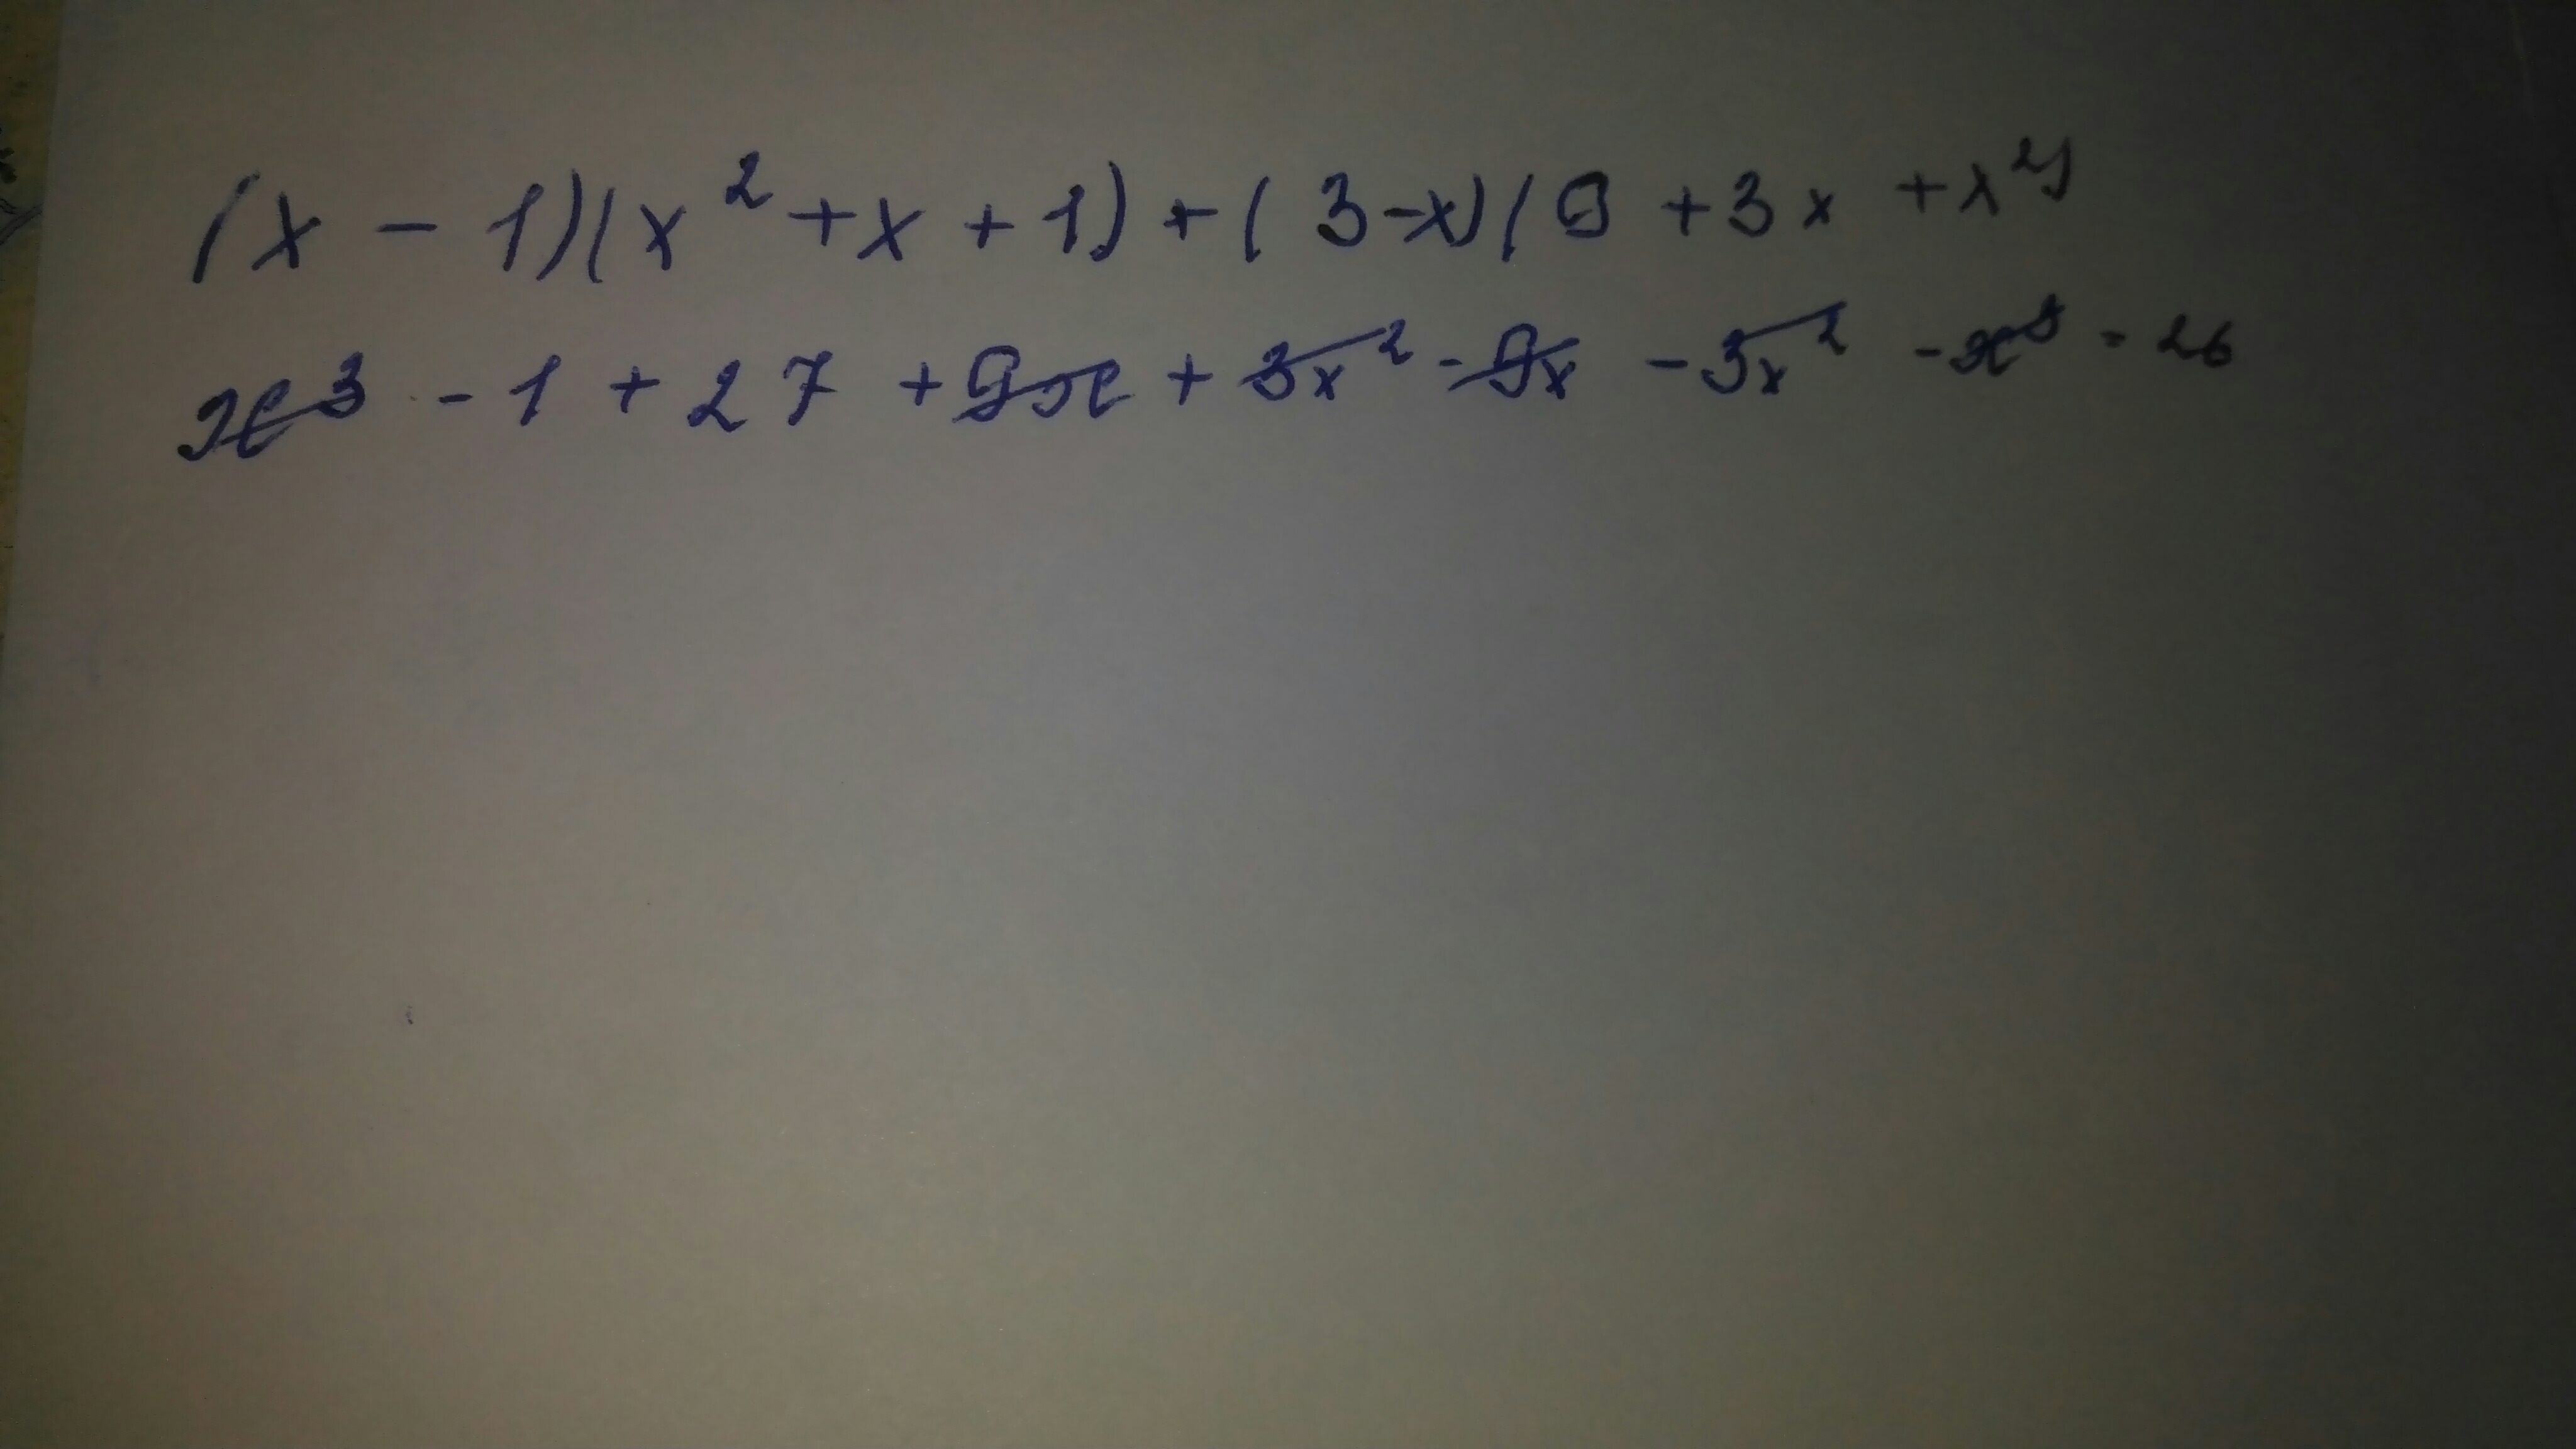 (x - 1)(x² + x + 1) + (3 - x)(9 + 3x + x²)
x³ - 1 + 27 + 9x + 3x² - 9x - 3x² - x³ = 26